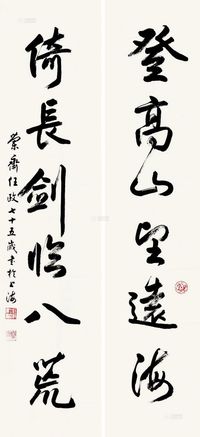 登高山望遠海
倚長劍臨八荒
蘭齋任政七十五歲書於上海